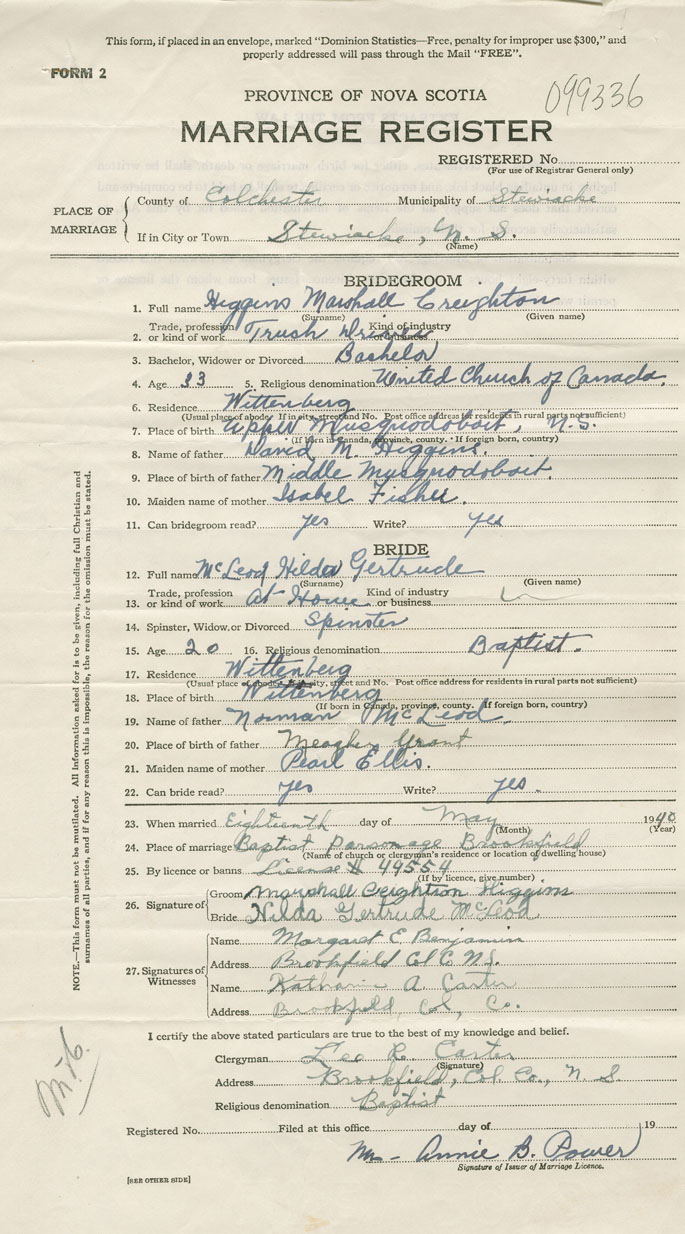 This form, if placed in an envelope, marked "Dominion Statistics—Free, penalty for improper use $300," and
properly addressed will pass through the Mail "FREE".
FORM 2
PROVINCE OF NOVA SCOTIA
099336
MARRIAGE REGISTER
REGISTERED No
(For use of Registrar General only)
PLACE OF MARRIAGE
County of Colchester Municipality of Stewiacke
If in City or Town Stewiacke, N. S.
(Name)
BRIDEGROOM
1. Full name Higgins Marshall Creighton
(Surname) (Given name)
Trade, profession Kind of industry
2. or kind of work Truck Driver or business
3. Bachelor, Widower or Divorced Bachelor
4. Age 33 5. Religious denomination United Church of Canada.
6. Residence Wittenberg
(Usual place of abode. If in city, street and No. Post office address for residents in rural parts not sufficient)
7. Place of birth Upper Musquodoboit, N.S.
(If born in Canada, province, county. If foreign born, country)
8. Name of father David M. Higgins.
9. Place of birth of father Middle Musquodoboit.
10. Maiden name of mother Isabel Fisher.
11. Can bridegroom read? yes Write? yes
BRIDE
12. Full name McLeod Hilda Gertrude
(Surname) (Given name)
Trade, profession Kind of industry
13. or kind of work At Home or business
14. Spinster, Widow or Divorced Spinster
15. Age 20 16. Religious denomination Baptist.
17. Residence Wittenberg
(Usual place of abode. If in city, street and No. Post office address for residents in rural parts not sufficient)
18. Place of birth Wittenberg
(If born in Canada, province, county. If foreign born, country)
19. Name of father Norman McLeod.
20. Place of birth of father Meagher Grant
21. Maiden name of mother Pearl Ellis.
22. Can bride read? yes Write? yes.
23. When married Eighteenth day of May 1940
(Month) (Year)
24. Place of marriage Baptist Parsonage Brookfield
(Name of church or clergyman's residence or location of dwelling house)
25. By licence or banns License # 49554
(If by licence, give number)
26. Signature of
Groom Marshall Creighton Higgins
Bride Hilda Gertrude McLeod
27. Signatures of Witnesses
Name Margaret E. Benjamin
Address Brookfield Col C. N.S.
Name Katharine A. Carter
Address Brookfield, Col. Co.
I certify the above stated particulars are true to the best of my knowledge and belief.
Clergyman Lee R. Carter
(Signature)
Address Brookfield, Col. Co., N. S.
Religious denomination Baptist
Registered No. Filed at this office day of 19
Annie B. Power
Signature of Issuer of Marriage Licence.
[SEE OTHER SIDE]
NOTE.—This form must not be mutilated. All Information asked for is to be given, including full Christian and
surnames of all parties, and if for any reason this is impossible, the reason for the omission must be stated.